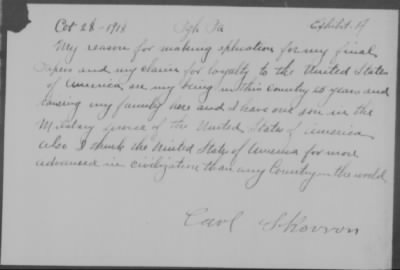 Oct 28 - 1918 Pgh Pa Exhibit A
My reason for making aplication for my final
Papers and my claim for loyalty to the United States
of America are my being in this Country 28 years and
haveing my family here and I have one son in the
Military of the United States of America
also I think the United States of America far more
advanced in civilization than any Country in the world
Carl Skovron